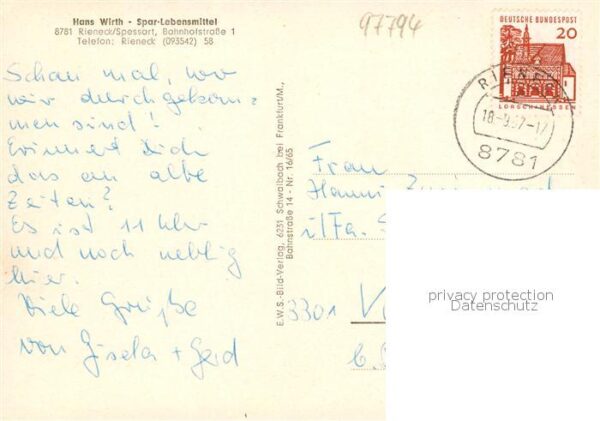 Hans Wirth · Spar-Lebensmittel
8781 Rieneck/Spessart, Bahnhofstraße 1
Telefon: Rieneck (093542) 58
97794
DEUTSCHE BUNDESPOST
20
LORSCH/HESSEN
18-9.67-17
8781
Schau mal, wo
wir durchgekom=
men sind!
Erinnert Dich
das an alte
Zeiten?
Es ist 11 Uhr
und noch neblig
hier.
Viele Grüße
von Gisela + Gerd
E.W.S.-Bild-Verlag, 6231 Schwalbach bei Frankfurt/M.,
Bahnstraße 14 - Nr. 16/65
Frau
Hanni
i/Fa.
3301
privacy protection
Datenschutz